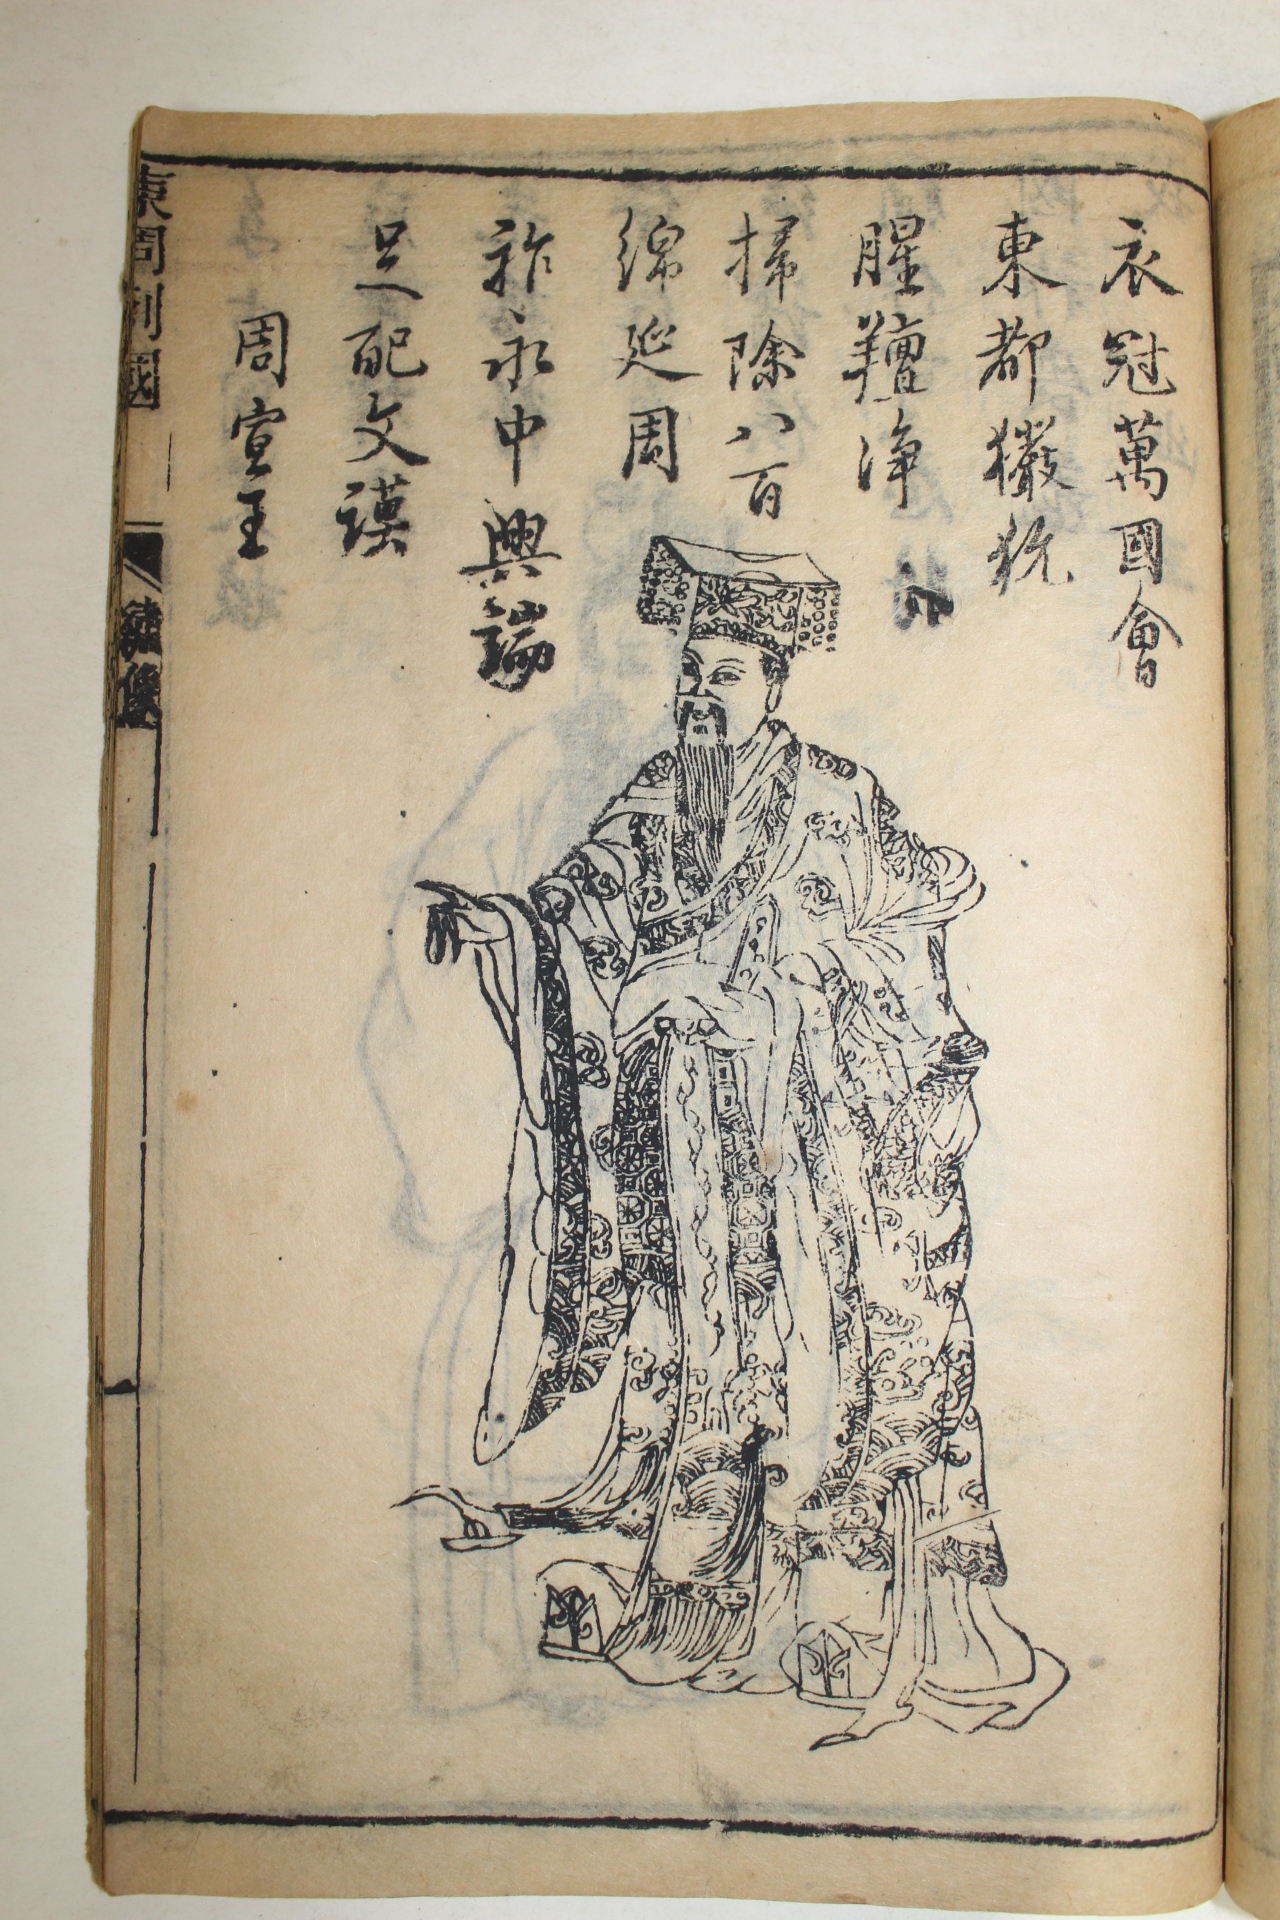 衣冠萬國會
東都玁狁
腥羶淨
掃除八百
綿延周
祚永中興端
足配文謨
周宣王
東周列國
繡像